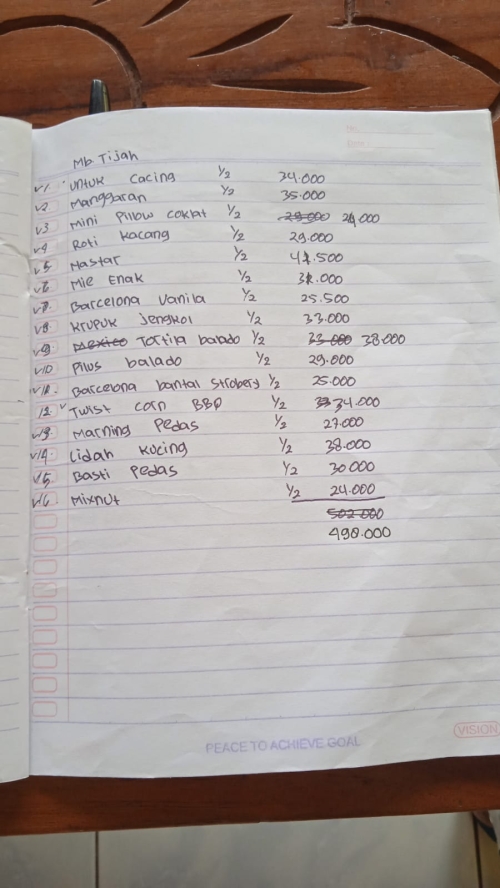 Mb. Tijah
√1. Untuk cacing ½ 34.000
√2 Manggaran ½ 35.000
√3 Mini Pillow coklat ½ 28.000 24.000
√4 Roti kacang ½ 29.000
√5 Nastar ½ 41.500
√6 Mie Enak ½ 31.000
√7. Barcelona Vanila ½ 25.500
√8. Krupuk jengkol ½ 33.000
√9. Mexico Tortila balado ½ 33.000 38.000
√10 Pilus balado ½ 29.000
√11. Barcelona bantal strobery ½ 25.000
12. √ Twist corn BBQ ½ 34.000
√13. Marning Pedas ½ 27.000
√14. Lidah kucing ½ 38.000
√15. Basti Pedas ½ 30.000
√16. Mixnut ½ 24.000
502.000
498.000
PEACE TO ACHIEVE GOAL
VISION